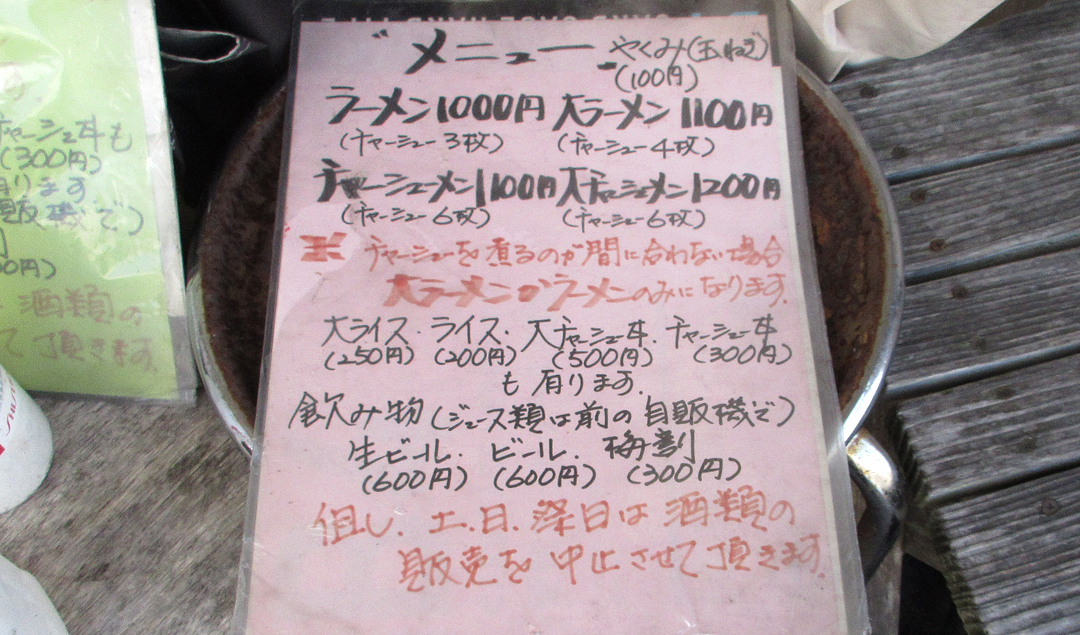 メニュー やくみ(玉ねぎ)
(100円)
ラーメン1000円 大ラーメン1100円
(チャーシュー3枚) (チャーシュー4枚)
チャーシューメン1100円 大チャーシュメン1200円
(チャーシュー6枚) (チャーシュー6枚)
※ チャーシューを煮るのが間に合わない場合
大ラーメンかラーメンのみになります.
大ライス・ライス・大チャーシュー丼・チャーシュー丼
(250円) (200円) (500円) (300円)
も有ります.
飲み物(ジュース類は前の自販機で)
生ビール・ビール・梅割
(600円) (600円) (300円)
但し、土、日、祭日は酒類の
販売を中止させて頂きます.
チャーシュー丼も
(300円)
有ります
販機で)
円)
酒類の
て頂きます.